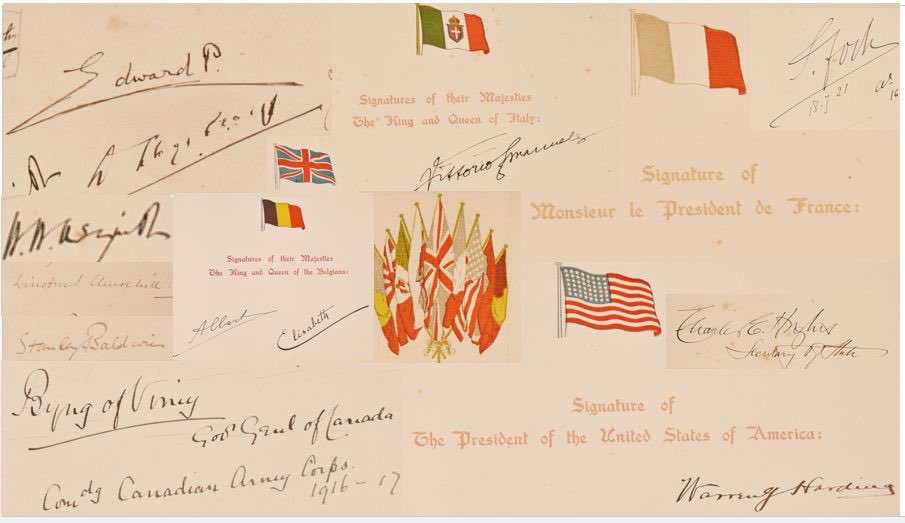 Edward P.
D Lloyd George
H. H. Asquith
Winston S Churchill
Stanley Baldwin
Signatures of their Majesties
The King and Queen of Italy:
Vittorio Emanuele
F. Foch
18.7.21
Signature of
Monsieur le President de France:
Signatures of their Majesties
The King and Queen of the Belgians:
Albert
Elisabeth
Charles E. Hughes
Secretary of State
Byng of Vimy
Govr Genl of Canada
Comdg Canadian Army Corps.
1916-17
Signature of
The President of the United States of America:
Warren G Harding